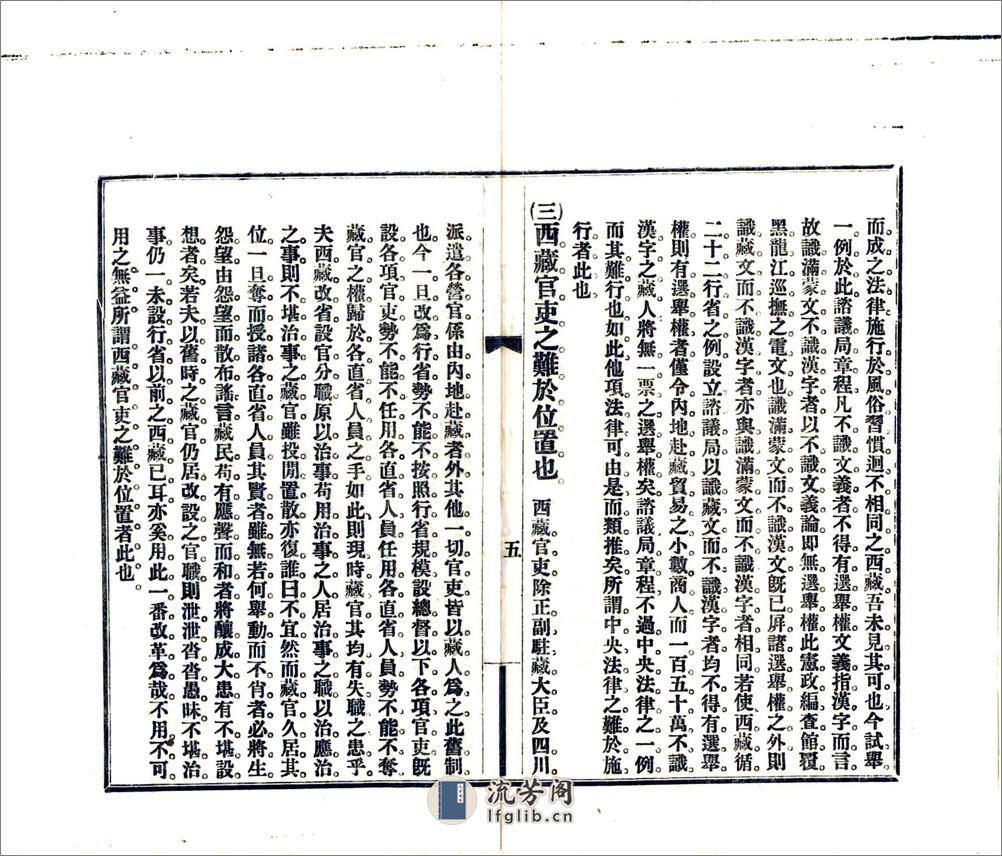 而成之法律施行於風俗習慣迥不相同之西藏。吾未見其可也。今試舉
一例。於此諮議局章程。凡不識文義者。不得有選舉權。文義指漢字而言。
故識滿蒙文不識漢字者。以不識文義論。即無選舉權。此憲政編查館覆
黑龍江巡撫之電文也。識滿蒙文而不識漢文。旣已屏諸選舉權之外。則
識藏文而不識漢字者。亦與識滿蒙文而不識漢字者相同。若使西藏循
二十二行省之例。設立諮議局。以識藏文而不識漢字者。均不得有選舉
權。則有選舉權者。僅令內地赴藏貿易之小數商人。而一百五十萬不識
漢字之藏人。將無一票之選舉權矣。諮議局章程。不過中央法律之一例。
而其難行也如此。他項法律。可由是而類推矣。所謂中央法律之難於施
行者此也。
(三)西藏官吏之難於位置也 西藏官吏。除正副駐藏大臣。及四川
五
派遣各營官。係由內地赴藏者外。其他一切官吏。皆以藏人爲之。此舊制
也。今一旦改爲行省。勢不能不按照行省規模。設總督以下各項官吏。旣
設各項官吏。勢不能不任用各直省人員。任用各直省人員。勢不能不奪
藏官之權。歸於各直省人員之手。如此則現時藏官。其均有失職之患乎。
夫西藏改省。設官分職。原以治事。苟用治事之人。居治事之職。以治應治
之事。則不堪治事之藏官。雖投閒置散。亦復誰曰不宜。然而藏官久居其
位。一旦奪而授諸各直省人員。其賢者雖無若何舉動。而不肖者必將生
怨望。由怨望而散布謠言。藏民苟有應聲而和者。將釀成大患。有不堪設
想者矣。若夫以舊時之藏官。仍居改設之官職。則泄泄沓沓。愚昧不堪治
事。仍一未設行省以前之西藏已耳。亦奚用此一番改革爲哉。不用不可。
用之無益。所謂西藏官吏之難於位置者此也。
流芳阁
lfglib.cn